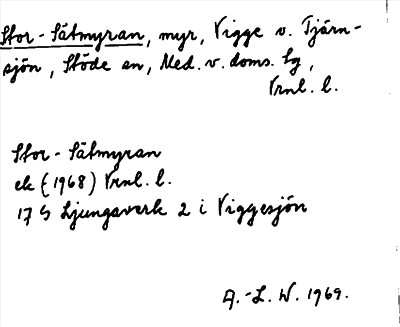 Stor-Sätmyran, myr, Vigge v. Tjärn-
sjön, Stöde sn, Med. v. doms. sg,
Vrnl. l.
Stor-Sätmyran
ek (1968) Vrnl. l.
17 G Ljungaverk 2 i Viggesjön
A.-L. W. 1969.